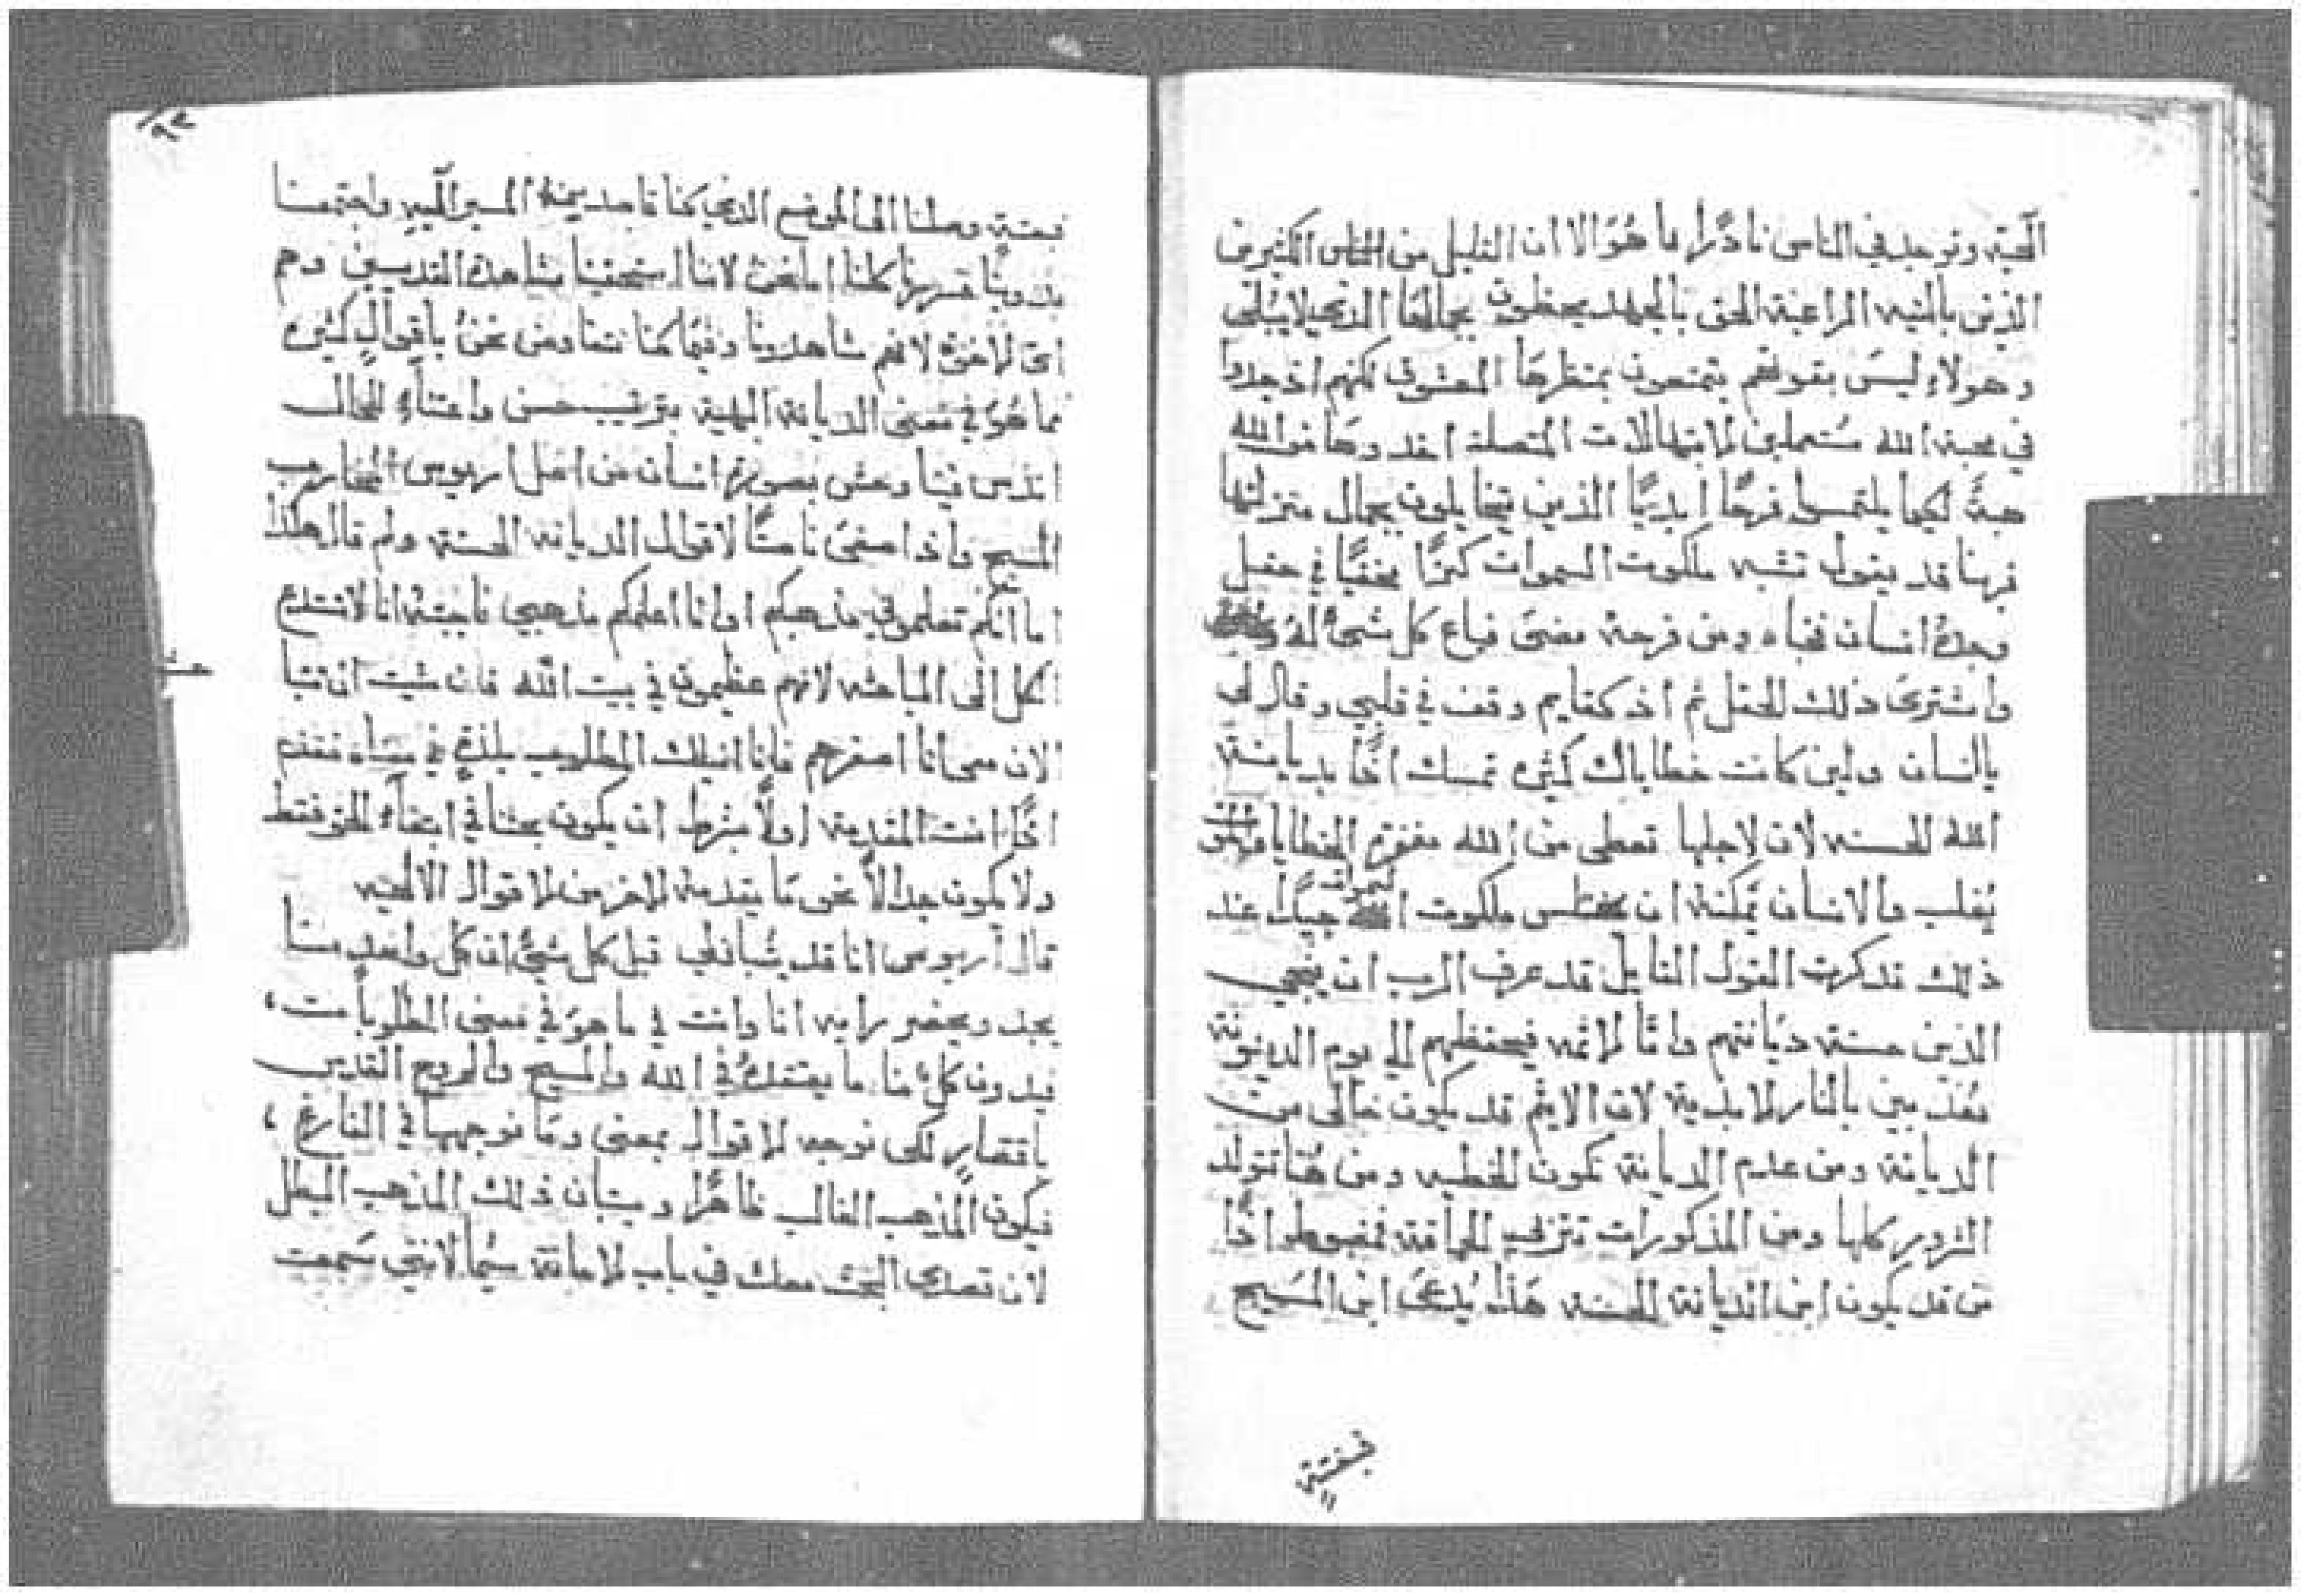 الحسنه وتوجد في الناس نادرًا ما هو الا ان القليل من الناس الكثيرين
الذين بالنيه الراغبة الحق بالجهد يحظون بجمالها الذي لا يبلى
وهولاء ليس بقوتهم يتمتعون بمنظرها المعشوق لكنهم اذ جدوا
في محبة الله مستعملين الابتهالات المتصلة اخذوها من الله
هبةً لكيما يلتمسوا فرحًا ابديًا الذين يتخايلون بجمال منزلتها
فربنا قد يقول تشبه ملكوت السموات كنزًا مخفيًا في حقل
وجده انسان فخباه ومن فرحه مضى فباع كل شئ له
واشترى ذلك الحقل ثم اذ كفايم وقف في قلبي وقال لي
ياانسان ولين كانت خطاياك كثيره تمسك اذًا بديانة
الله الحسنه لان لاجلها تعطى من الله مغفرة الخطايا
يُغلب والانسان يمكنه ان يختلس ملكوت السموات جيدًا عند
ذلك تذكرت القول القايل قد عرف الرب ان ينجي
الذين حسنة ديانتهم واما الاثمه فيحفظهم الى يوم الدينونة
معذبين بالنار الابدية لان الاثيم قد يكون خالى من
الديانة ومن عدم الديانة تكون الخطيه ومن هنا تتولد
الشرور كلها ومن المذكورات تتركب الحماقة فمغبوط اذًا
من قد يكون ابن الديانة الحسنه هذا يُدعى ابن المسيح
فبغتة
٩٣
فبغتةٍ وصلنا الى الموضع الذي كنا قاصديه المسير اليه واجتمعنا
بذوينا قسرنا كلنا اما نحن لاننا استحقينا مشاهدة القديسين وهم
ايّ الاخوه لانهم شاهدونا وفيما كنا نتفاوض نحن باقوالٍ كثيره
مما هو في معنى الديانة البهية بترتيب حسن واعتناءٍ للحال
اندس فينا وحش بصورة انسان من اهل اريوس المحارب
المسيح واذ اصغى ناصتًا لاقوال الديانه الحسنه ولم قال هكذا
اما انكم تعلموني مذهبكم او انا اعلمكم مذهبي فاجبته انا لا تستدع
الكل الى المباحثه لانهم عظيمون في بيت الله فان شيت ان تتبا
الان معى انا اصغرهم فانا انيلك المطلوب
اذًا انت المقدمة اولًا بشرط ان يكون بحثنا في ابتغاء الحق فقط
ولا يكون جدالًا نحو ما يقدمه الاخر من الاقوال الالهيه
قال اريوس انا قد قبل كل شئ ان كل واحد منا
يجب ويحضر رايه انا وانت في ما هو في معنى المطلوبات
فيدون كلٌ منا ما يعتقده في الله والمسيح والروح القدس
باقتصارٍ لكى نوجه الاقوال بمعنى وما نوجهها في الفارغ
فيكون المذهب الغالب ظاهرًا ويبان ذلك المذهب البطل
لان تصدى البحث معك في باب الامانة سيما لانني سمعت